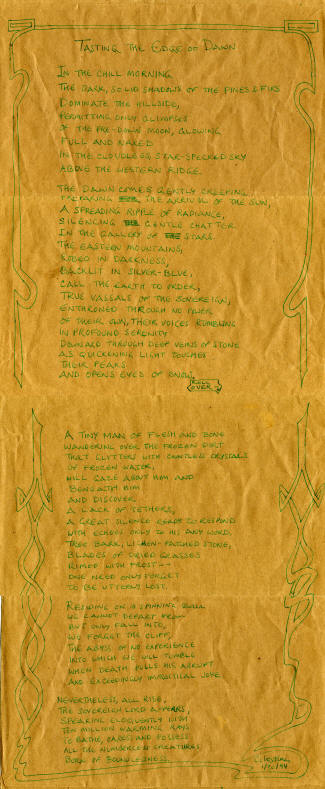 TASTING THE EDGE OF DAWN
IN THE CHILL MORNING
THE DARK, SOLID SHADOWS OF THE PINES & FIRS
DOMINATE THE HILLSIDE,
PERMITTING ONLY GLIMPSES
OF THE PRE-DAWN MOON, GLOWING
FULL AND NAKED
IN THE CLOUDLESS, STAR-SPECKED SKY
ABOVE THE WESTERN RIDGE.
THE DAWN COMES GENTLY CREEPING
THE ARRIVAL OF THE SUN,
A SPREADING RIPPLE OF RADIANCE,
SILENCING THE GENTLE CHATTER
IN THE GALLERY OF STARS.
THE EASTERN MOUNTAINS,
ROBED IN DARKNESS,
BACKLIT IN SILVER-BLUE,
CALL THE EARTH TO ORDER,
TRUE VASSALS OF THE SOVEREIGN,
ENTHRONED THROUGH NO POWER
OF THEIR OWN, THEIR VOICES RUMBLING
IN PROFOUND SERENITY
DOWNWARD THROUGH DEEP VEINS OF STONE
AS QUICKENING LIGHT TOUCHES
THEIR PEAKS
AND OPENS EYES OF SNOW.
ROLL OVER
A TINY MAN OF FLESH AND BONE
WANDERING OVER THE FROZEN DIRT
THAT GLITTERS WITH COUNTLESS CRYSTALS
OF FROZEN WATER,
WILL GAZE ABOUT HIM AND
BENEATH HIM
AND DISCOVER
A LACK OF TETHERS,
A GREAT SILENCE READY TO RESPOND
WITH ECHOES ONLY TO HIS ANY WORD,
TREE BARK, LICHEN-PATCHED STONE,
BLADES OF DRIED GRASSES
RIMED WITH FROST--
ONE NEED ONLY FORGET
TO BE UTTERLY LOST.
RESIDING ON A SPINNING BALL
WE CANNOT DEPART FROM
BUT ONLY FALL INTO,
WE FORGET THE CLIFF,
THE ABYSS OF NO EXPERIENCE
INTO WHICH WE WILL TUMBLE
WHEN DEATH PULLS HIS ABRUPT
AND EXCEEDINGLY IMPARTIAL JOKE.
NEVERTHELESS, ALL RISE,
THE SOVEREIGN LORD APPEARS,
SPEAKING ELOQUENTLY WITH
TEN MILLION WARMING RAYS
TO BATHE, CARESS AND POSSESS
ALL THE NUMBERLESS CREATURES
BORN OF BOUNDLESSNESS.